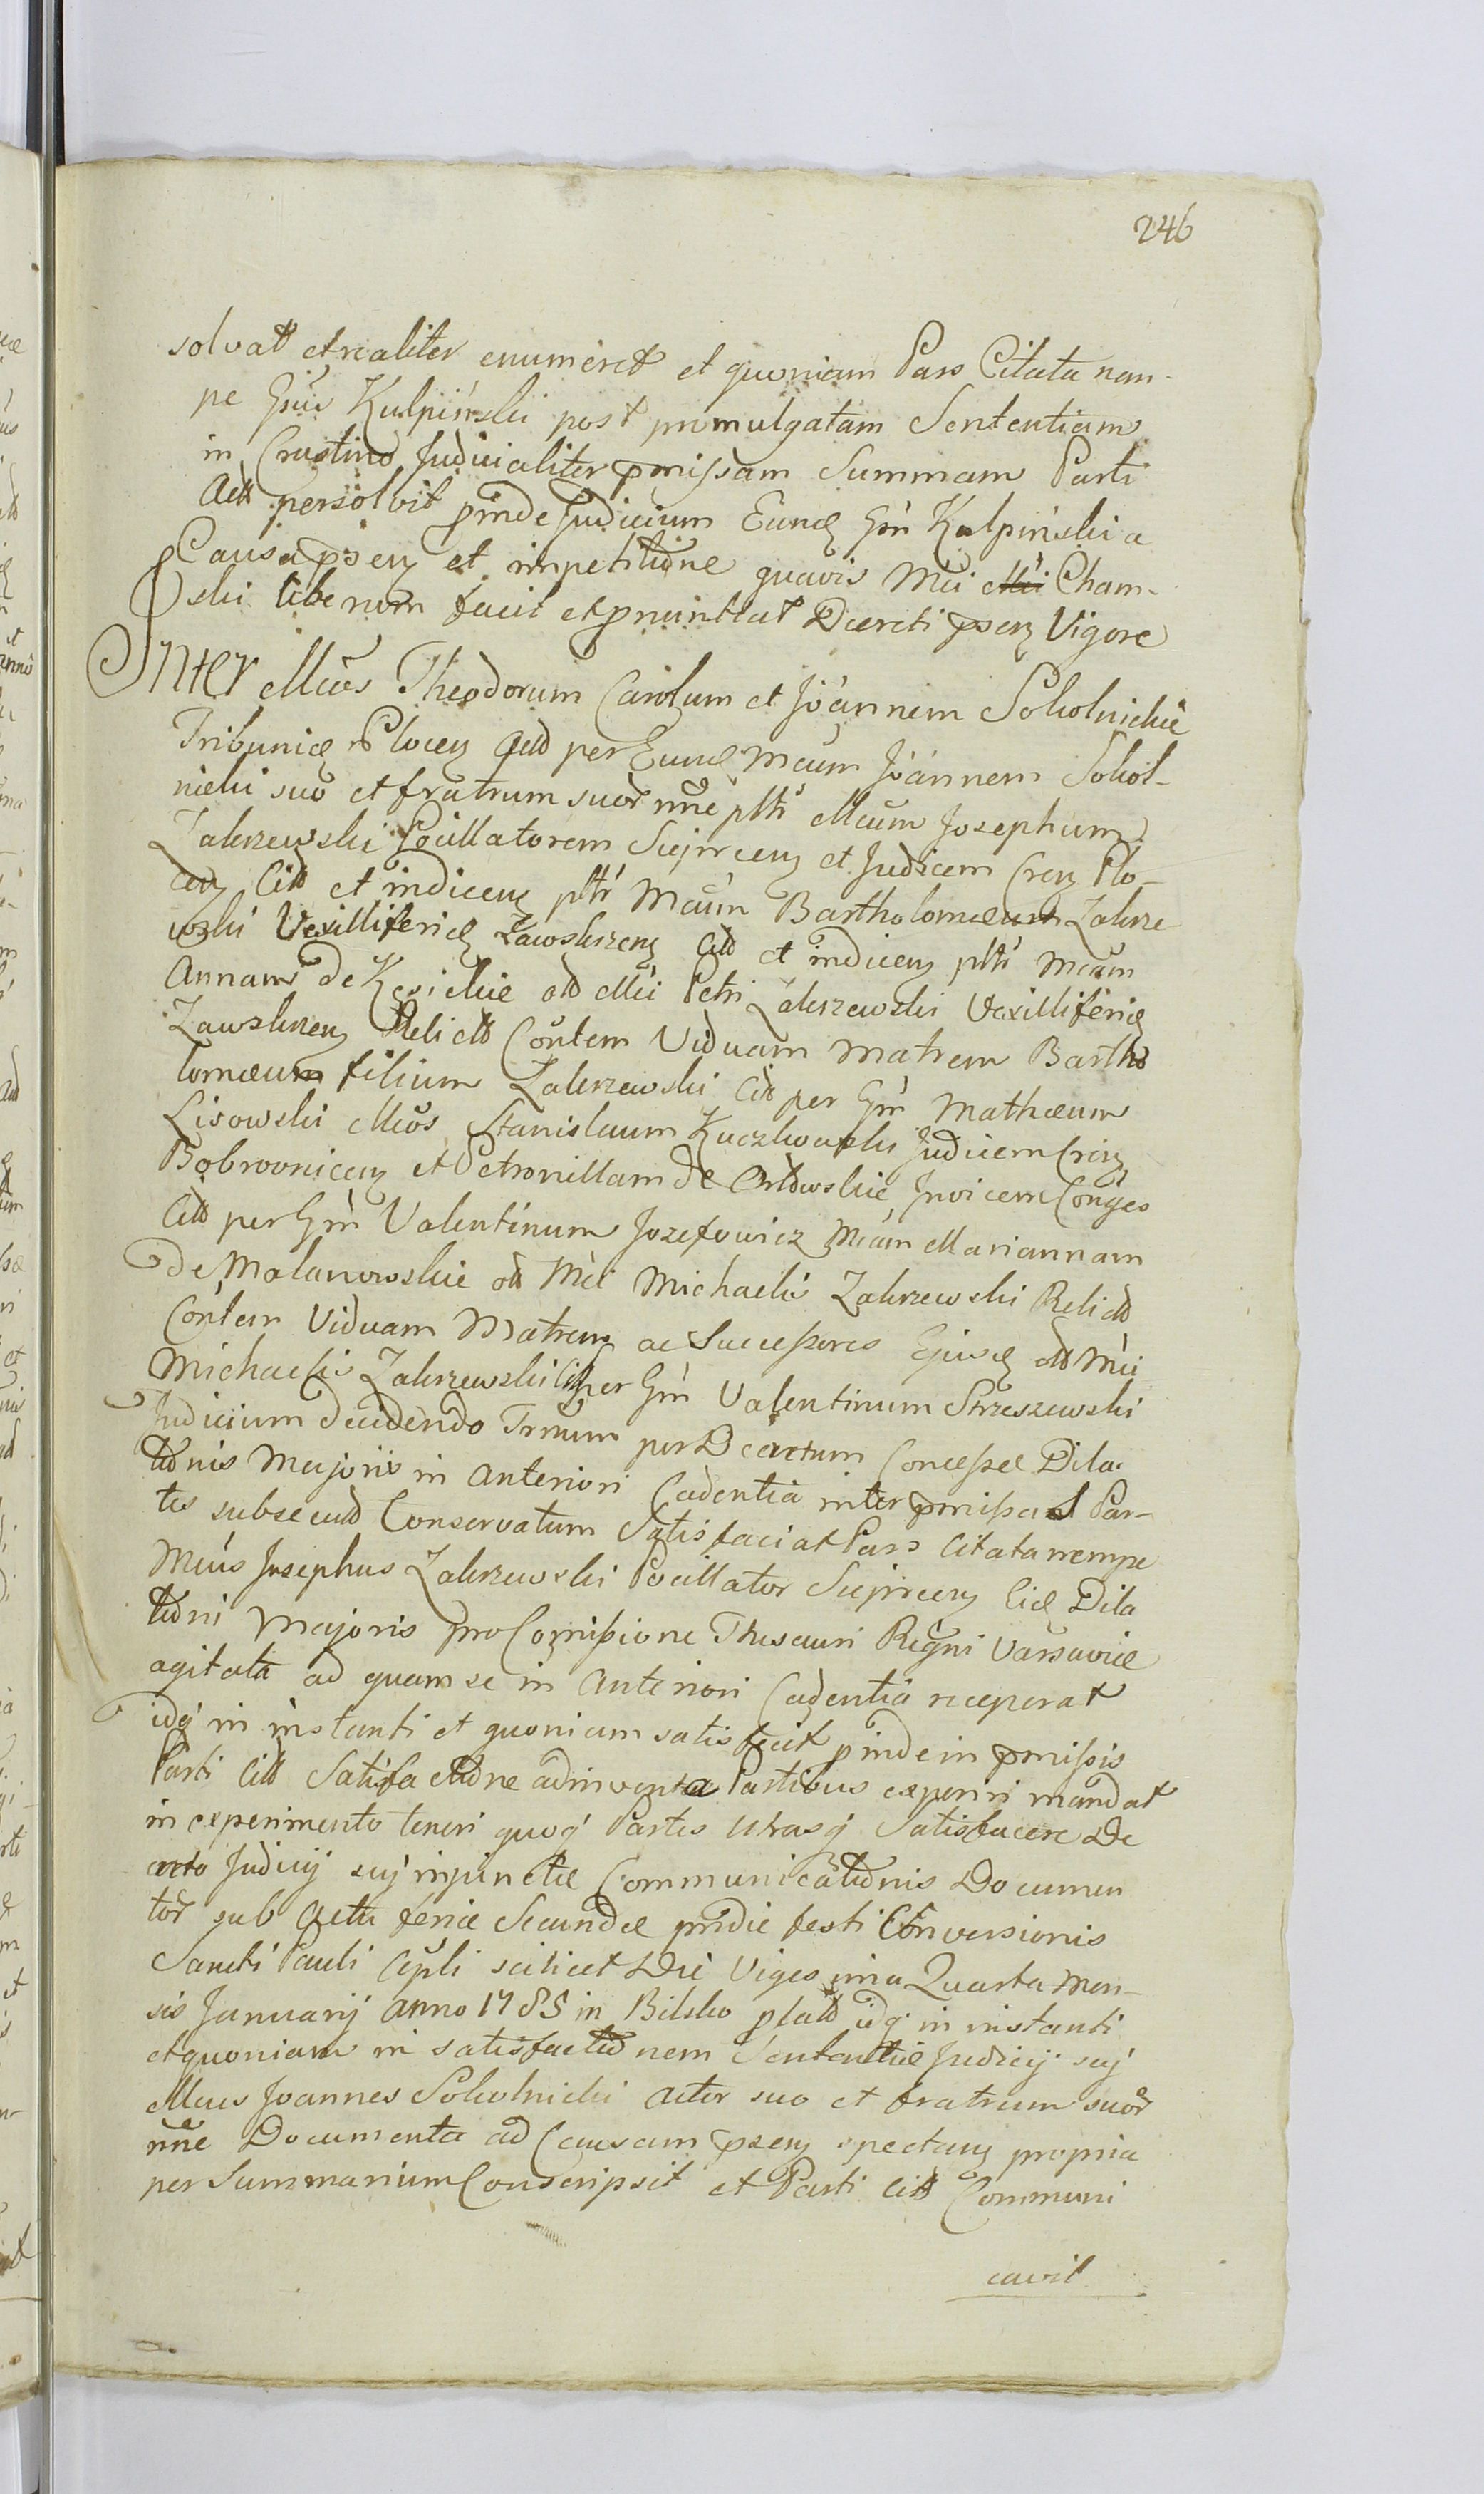 246
solvat et realiter enumeret et quoniam Pars Citata nem-
pe Gsus Kulpiński post promulgatam Sententiam
in Crastino Judicialiter pmissam Summam Parti
Act persolvit pinde Judicium Eund Gsm Kulpiński a
Causa psen et impetitione quavis Mci Mci Cham-
ski liberum facit et pnuntiat Decreti psen Vigore
Inter Mcos Theodorum Carolum et Joannem Sokolnickie
Tribunid Plocen Act per Eund Mcum Joannem Sokol-
nicki suo et fratrum suor nne pltr Mcum Josephum
Zakrzewski Pocillatorem Sieprcen et Judicem Cren Plo-
cen Citt et indicen pltr Mcum Bartholomæum Zakrze
wski Vexilliferid Zawskrzen Citt et indicen pltr Mcam
Annam de Kęsickie ott Mci Petri Zakrzewski Vexilliferid
Zawskrzen Relictt Contem Viduam Matrem Bartho
lomæum filium Zakrzewski Citt per Gsm Mathæum
Lisowski Mcos Stanislaum Kuczkowski Judicem Cren
Bobrovnicen et Petronillam de Orłowskie Invicem Conges
Citt per Gsm Valentinum Jozefowicz Mcam Mariannam
de Malanowskie ott Mci Michaelis Zakrzewski Relictt
Contem Viduam Matrem ac Successores Ejusd ott Mci
Michaelis Zakrzewski Citt per Gsm Valentinum Strzeszewski
Judicium decidendo Trnum per Decretum Concessæ Dila-
tionis Majoris in anteriori Cadentia inter pmissas Par-
tes subsecutt Conservatum Satisfaciat Pars Citata nempe
Mcus Josephus Zakrzewski Pocillator Sieprcen Eid Dila
tioni Majoris pro Comissione Thesauri Regni Varsaviæ
agitata ad quam se in anteriori Cadentia receperat
idq in instanti et quoniam satisfecit pinde in pmissis
Parti Citt Satisfactione adinventa Partibus experiri mandat
in experimento teneri quoq Partes utrasq Satisfacere De
creto Judicij sui injunctæ Communicationis Documen
tor sub Actu feriæ Secundæ pridie festi Conversionis
Sancti Pauli Apli scilicet Die Vigesima Quarta Men-
sis Januarij Anno 1785 in Bilsko platt idq in instanti
et quoniam in satisfactionem Sententiæ Judicij sui
Mcus Joannes Sokolnicki Actor suo et fratrum suor
nne Documenta ad Causam psen spectan propria
per Summarium Conscripsit et Parti Citt Communi
cavit